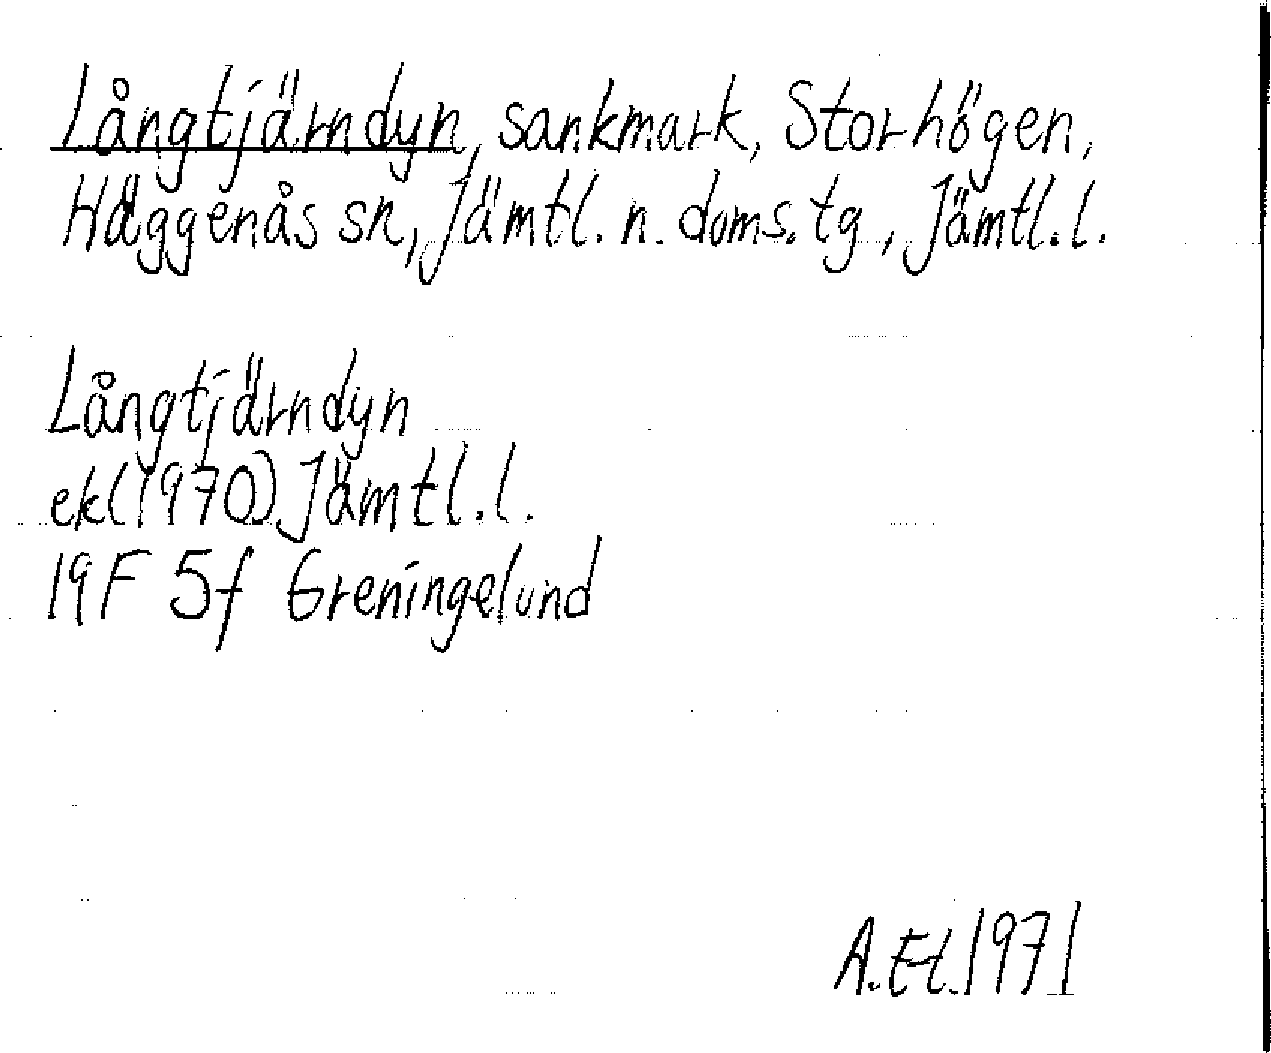 Långtjärndyn, sankmark, Storhögen,
Häggenås sn, Jämtl. n. doms. tg, Jämtl. l.
Långtjärndyn
ek (1970) Jämtl. l.
19F 5f Greningelund
A. Et. 1971